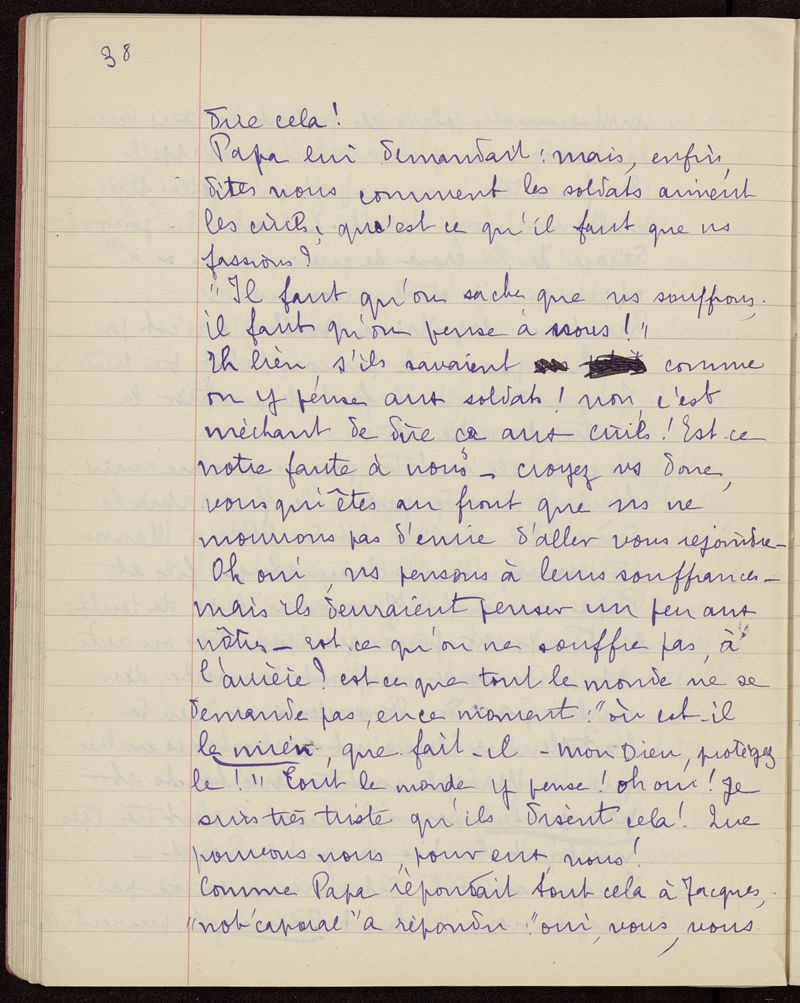 38
dire cela!
Papa lui demandait : mais, enfin,
dites nous comment les soldats aiment
les civils, qu'est ce qu'il faut que ns
fassions?
"Il faut qu'on sache que ns souffrons,
il faut qu'on pense à nous!"
Eh bien s'ils savaient comme
on y pense aux soldats! non, c'est
méchant de dire ça aux civils! Est-ce
notre faute à nous – croyez vs donc,
vous qu'êtes au front que ns ne
mourrons pas d'envie d'aller vous rejoindre –
Oh oui, ns pensons à leurs souffrances –
mais ils devraient penser un peu aux
nôtres – est-ce qu'on ne souffre pas, à
l'arrière? est ce que tout le monde ne se
demande pas, en ce moment : "où est-il
le mien, que fait-il – mon Dieu, protégez
le!" Tout le monde y pense! oh oui! Je
suis très triste qu'ils disent cela! Que
pouvons nous, pour eux, nous!
Comme Papa répondait tout cela à Jacques,
"not' caporal" a répondu : "oui, vous, vous